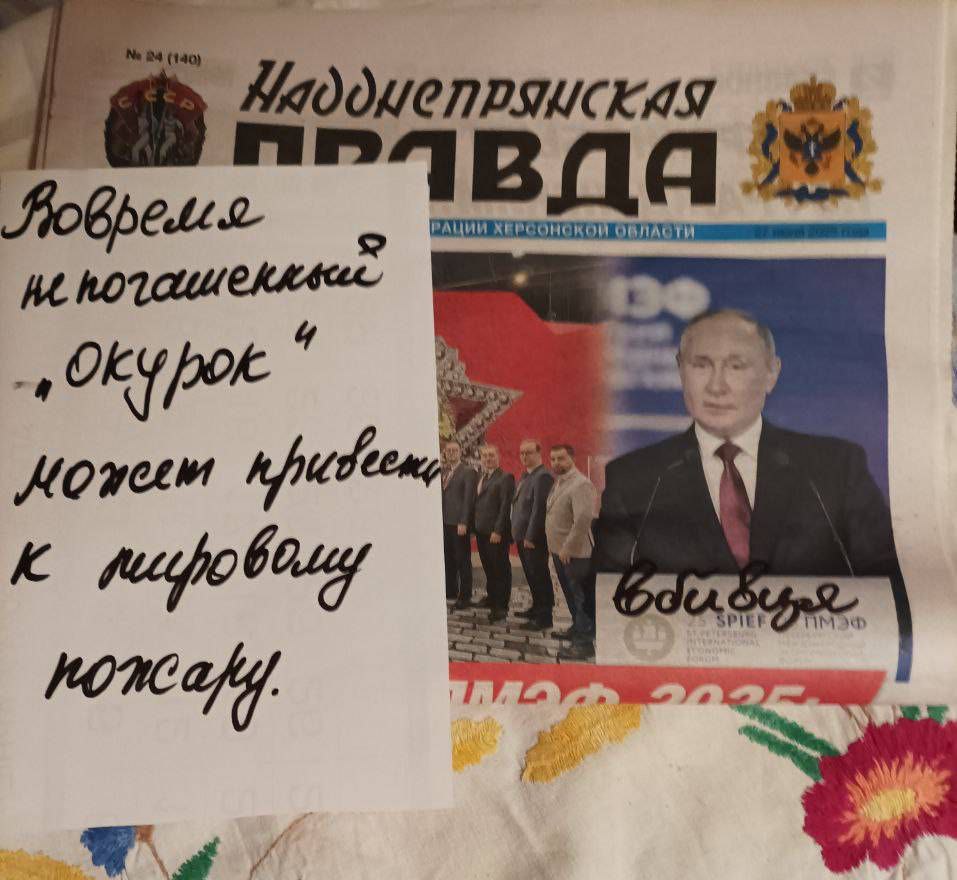 № 24 (140)
СССР
Наддне­прянская
ПРАВДА
РАЦИИ ХЕРСОНСКОЙ ОБЛАСТИ
27 июня 2025 года
Вовремя
непогашенный
„окурок“
может привести
к мировому
пожару.
ПМЭФ
Вбивця
25 SPIEF ПМЭФ
ST. PETERSBURG
INTERNATIONAL
ECONOMIC
FORUM
ПМЭФ 2025: